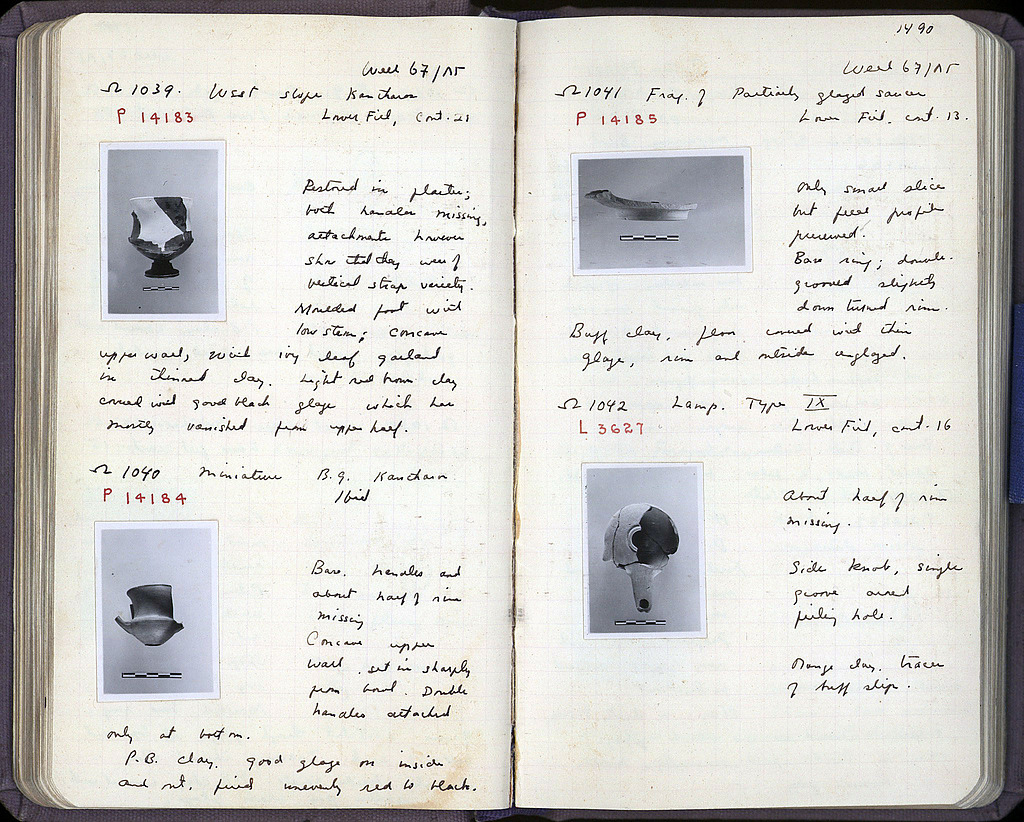 Well 67/ΛΓ
Ω 1039. West slope Kantharos
P 14183
Lower Fill, Cont. 21
Restored in plaster;
both handles missing,
attachments however
show that they were of
vertical strap variety.
Moulded foot with
low stem; concave
upper wall, with ivy leaf garland
in thinned clay. Light red brown clay
covered with good black glaze which has
mostly vanished from upper half.
Ω 1040 Miniature B.G. Kantharos
P 14184
Ibid
Base, handles and
about half of rim
missing
Concave upper
wall set in sharply
from bowl. Double
handles attached
only at bottom.
P.B. clay, good glaze on inside
and out, fired unevenly red to black.
1490
Well 67/ΛΓ
Ω 1041 Frag. of Partially glazed saucer
P 14185
Lower Fill, cont. 13.
Only small slice
but full profile
preserved.
Base ring; double
grooved slightly
down turned rim.
Buff clay, floor covered with thin
glaze, rim and outside unglazed.
Ω 1042 Lamp. Type IX
L 3627
Lower Fill, cont. 16
About half of rim
missing.
Side knob, single
groove around
filling hole.
Orange clay, traces
of buff slip.